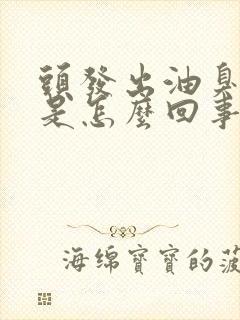 頭發出油臭
是怎麼回事
海綿寶寶的菠